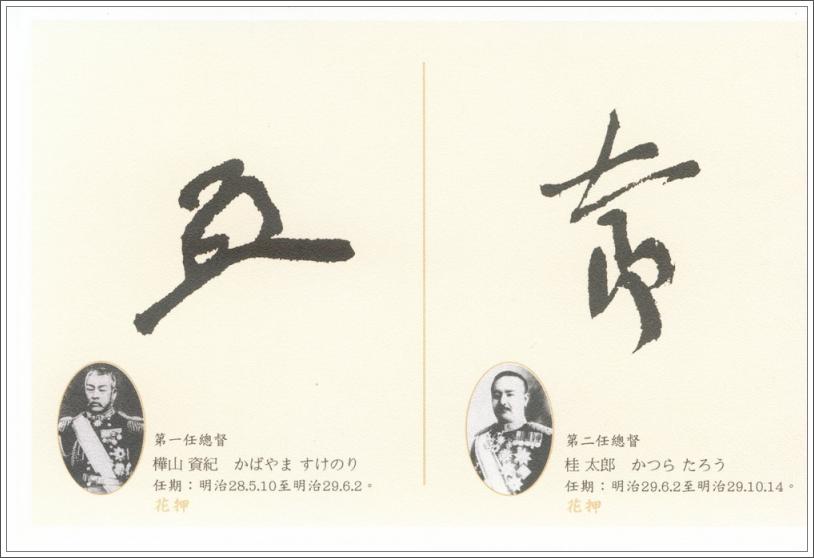 第一任總督
樺山 資紀 かばやま すけのり
任期：明治28.5.10至明治29.6.2。
花押
第二任總督
桂 太郎 かつら たろう
任期：明治29.6.2至明治29.10.14。
花押